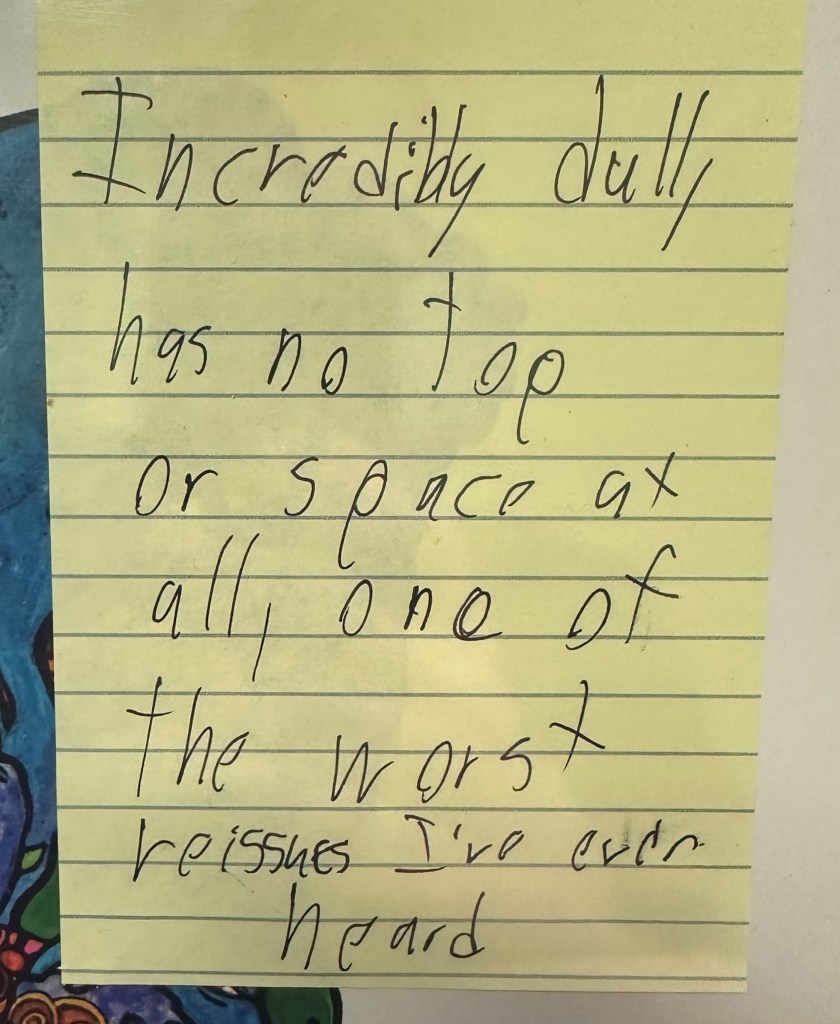 Incredibly dull,
has no top
or space at
all, one of
the worst
reissues I've ever
heard